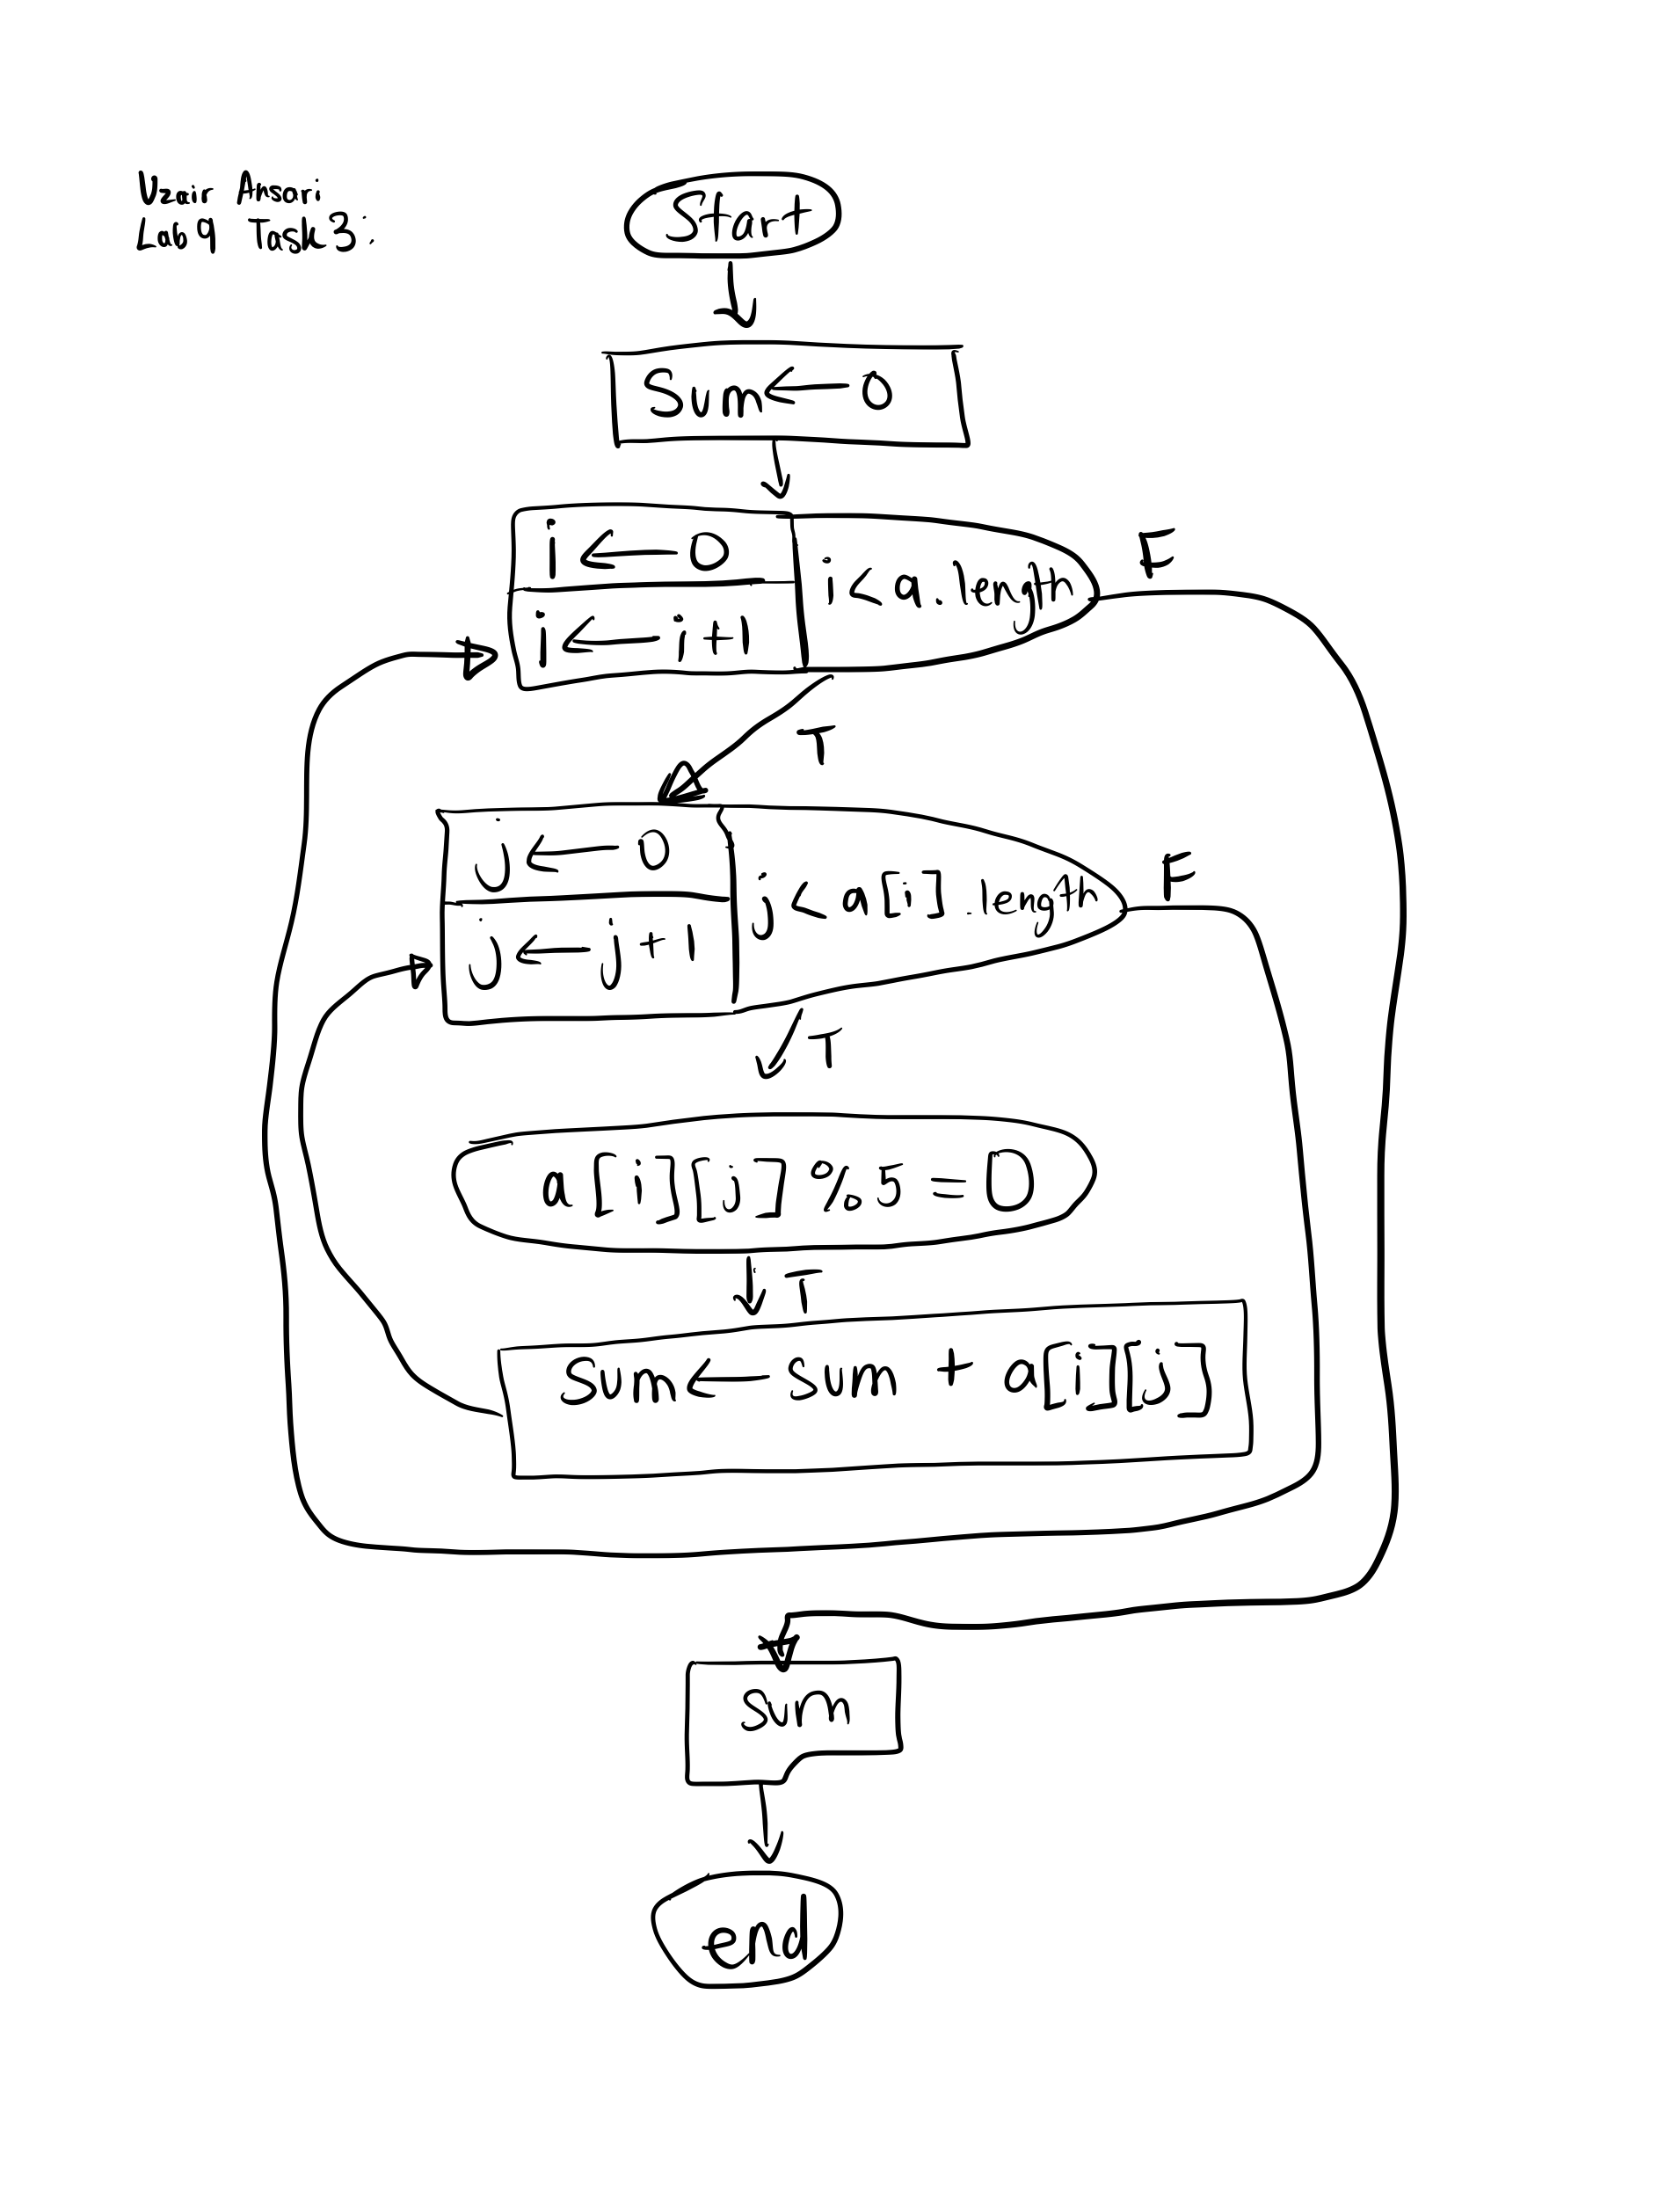 Uzair Ansari
Lab 9 Task 3:
Start
Sum ← 0
i ← 0
i < a.length
F
i ← i+1
T
j ← 0
j < a[i].length
F
j ← j+1
T
a[i][j] % 5 = 0
T
Sum ← sum + a[i][j]
sum
end